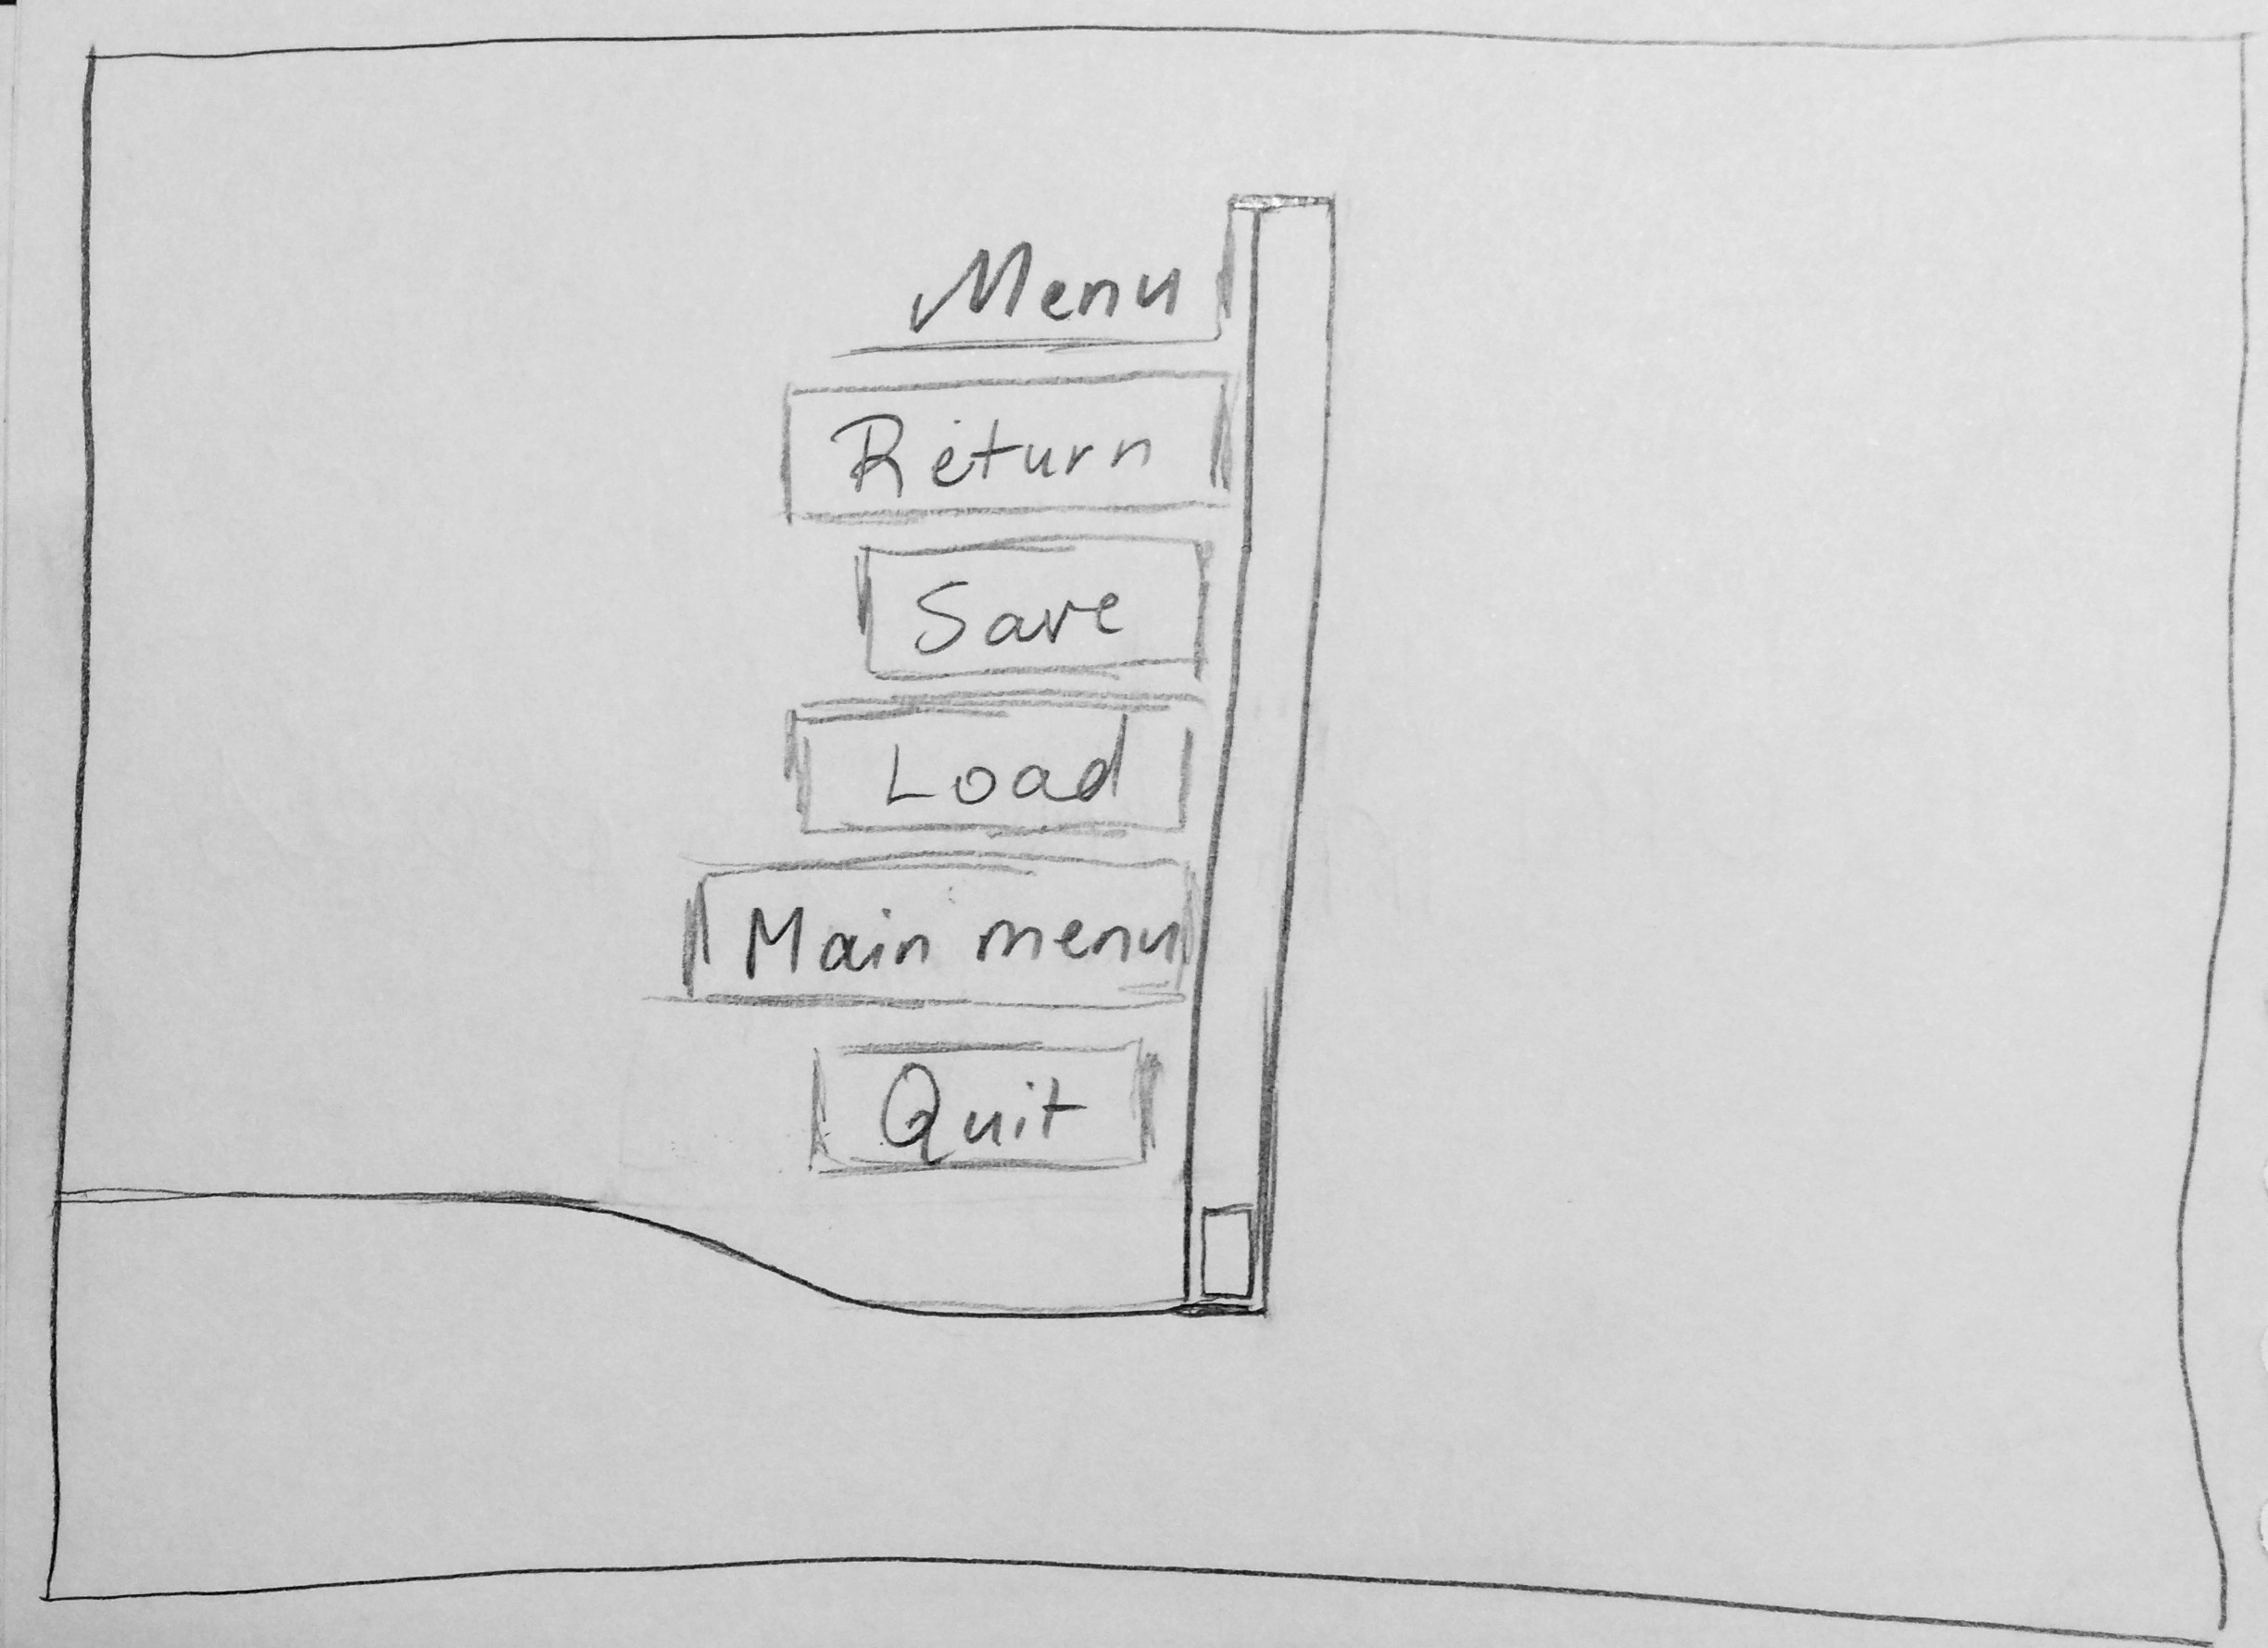 Menu
Return
Save
Load
Main menu
Quit